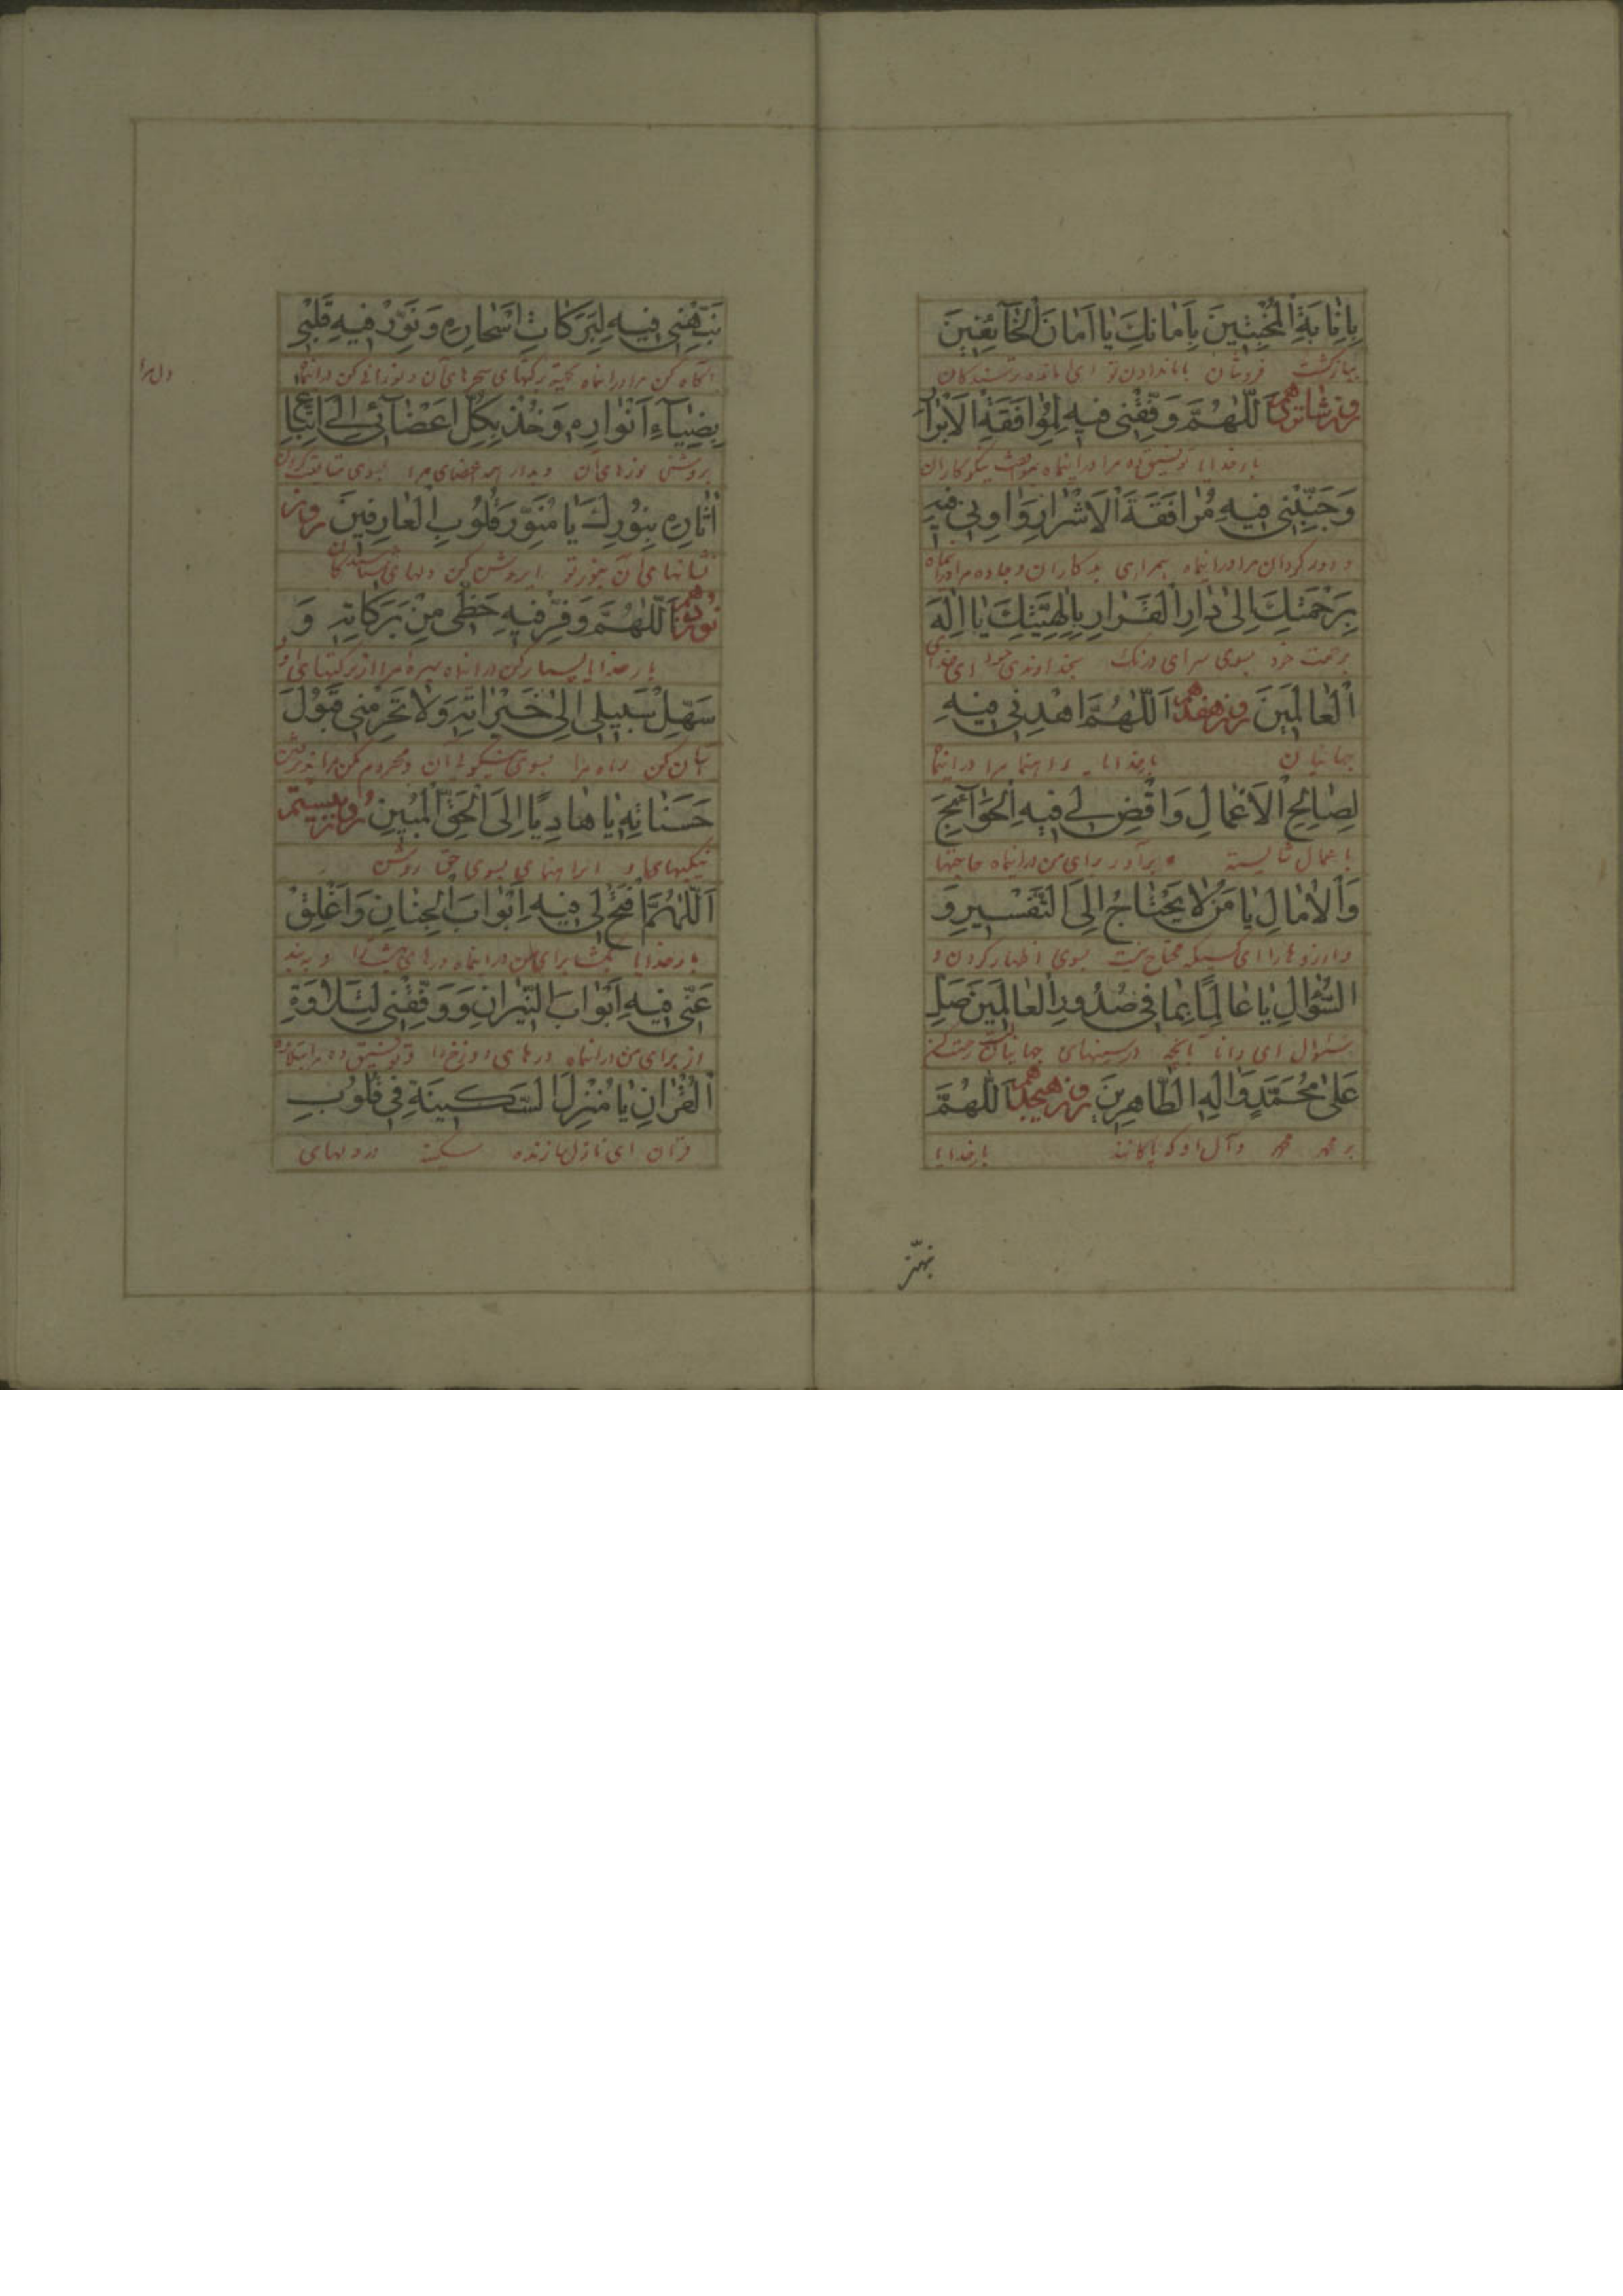 بِاِنٰابَةِ الْمُخْبِتينَ بِاَمٰانِكَ يٰا اَمٰانَ الْخٰآئِفينَ
ببازگشت فروتنان بامان دادن تو ای امان دهنده ترسندکان
روز شانزدهم اَللّٰهُمَّ وَفِّقْنى فيهِ لِمُوٰافَقَةِ الْاَبْرٰارِ
بارخدایا توفیق ده مرا دراینماه بموافقت نیکوکاران
وَجَنِّبْنى فيهِ مُرٰافَقَةَ الْاَشْرٰارِ وَاٰوِنى فيهِ
و دور کردان مرا دراینماه همراهی بدکاران و جا ده مرا دراینماه
بِرَحْمَتِكَ اِلىٰ دٰارِ الْقَرٰارِ بِاِلٰهِيَّتِكَ يٰا اِلٰهَ
برحمت خود بسوی سرای درنک بخداوندی خود ای خدای
الْعٰالَمينَ روز هفدهم اَللّٰهُمَّ اهْدِنى فيهِ
جهانیان بارخدایا راهنما مرا دراینماه
لِصٰالِحِ الْاَعْمٰالِ وَاقْضِ لى فيهِ الْحَوٰآئِجَ
باعمال شایسته و برآور برای من دراینماه حاجتها
وَالْاٰمٰالَ يٰا مَنْ لٰا يَحْتٰاجُ اِلَى التَّفْسيرِ وَ
و ارزوها را ای کسیکه محتاج نیست بسوی اظهار کردن و
السُّؤٰالِ يٰا عٰالِمًا بِمٰا فى صُدُورِ الْعٰالَمينَ صَلِّ
سئوال ای دانا بآنچه درسینهای جهانیان رحمت کن
عَلىٰ مُحَمَّدٍ وَاٰلِهِ الطّٰاهِرينَ روز هیجدهم اَللّٰهُمَّ
بر محمد و آل او که پاکانند بارخدایا
نبّهنى
نَبِّهْنى فيهِ لِبَرَكٰاتِ اَسْحٰارِهِ وَنَوِّرْ فيهِ قَلْبى
آگاه کن مرا دراینماه بجهة برکتهای سحرهای آن و نورانی کن دراینماه
دل مرا
بِضِيٰآءِ اَنْوٰارِهِ وَخُذْ بِكُلِّ اَعْضٰآئى اِلَى اتِّبٰاعِ
بروشنی نورهای آن و بدار همه اعضای مرا بسوی متابعت کردن
اٰثٰارِهِ بِنُورِكَ يٰا مُنَوِّرَ قُلُوبِ الْعٰارِفينَ روز
نشانهای آن بنور تو ای روشن کن دلهای شناسندگان
نوزدهم اَللّٰهُمَّ وَفِّرْ فيهِ حَظّى مِنْ بَرَكٰاتِهِ وَ
بارخدایا بسیار کن دراینماه بهره مرا از برکتهای او و
سَهِّلْ سَبيلى اِلىٰ خَيْرٰاتِهِ وَلٰا تَحْرِمْنى قَبُولَ
آسان کن راه مرا بسوی نیکوئی آن و محروم مکن مرا پذیرفتن
حَسَنٰاتِهِ يٰا هٰادِيًا اِلَى الْحَقِّ الْمُبينِ روز بیستم
نیکیهای او ای راهنمای بسوی حق روشن
اَللّٰهُمَّ افْتَحْ لى فيهِ اَبْوٰابَ الْجِنٰانِ وَاَغْلِقْ
بارخدایا بگشا برای من دراینماه درهای بهشت را و به بند
عَنّى فيهِ اَبْوٰابَ النّيرٰانِ وَوَفِّقْنى لِتِلٰاوَةِ
از برای من دراینماه درهای دوزخ را و توفیق ده مرا بتلاوة
الْقُرْاٰنِ يٰا مُنْزِلَ السَّكينَةِ فى قُلُوبِ
قرآن ای نازل سازنده سکینه در دلهای